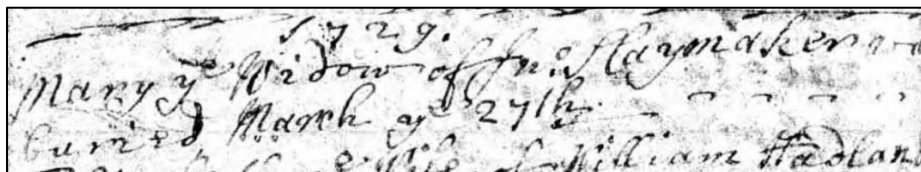 1729.
Mary ye Widow of Jno. Haymaker wa
buried, March ye 27th.
ye Wife of William Hadlan